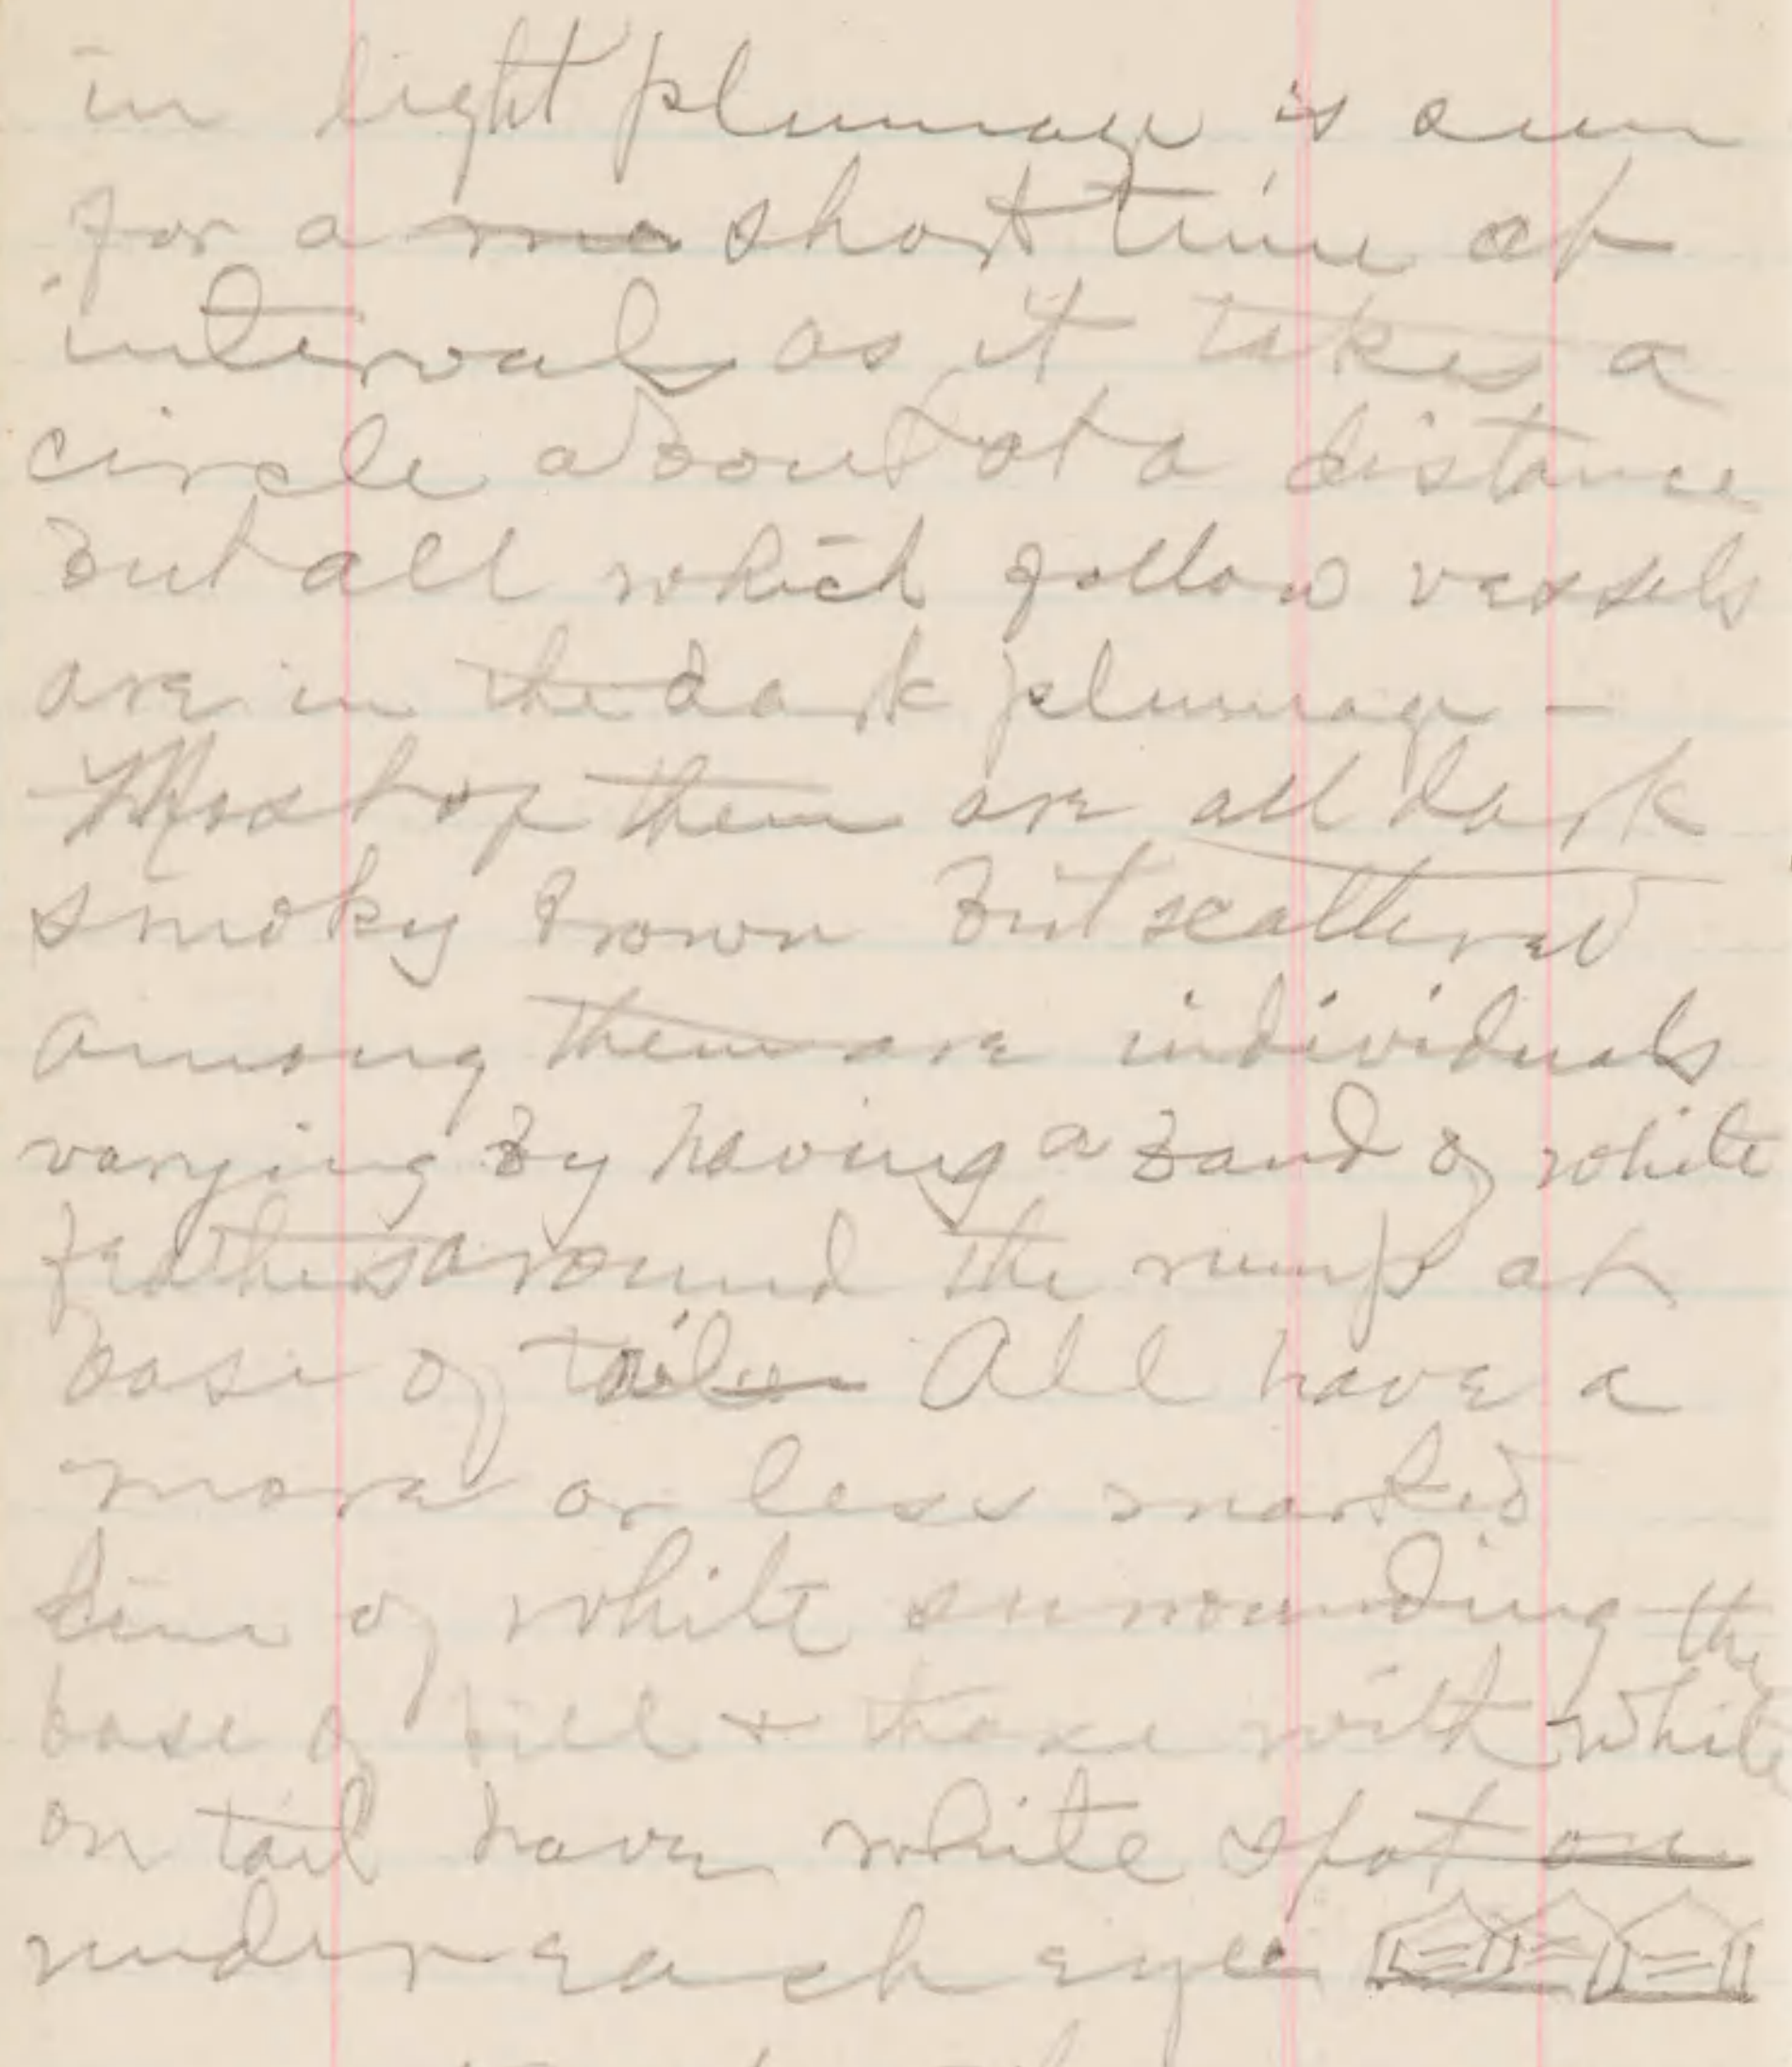 in light plumage is seen
for a mo short time at
intervals as it takes a
circle about at a distance
but all which follow vessels
are in the dark plumage -
Most of them are all dark
smoky brown but scattered
among them are individuals
varying by having a band of white
feathers around the rump at
base of tail All have a
more or less marked
line of white surrounding the
base of bill + those with white
on tail have white spot on
under each eye